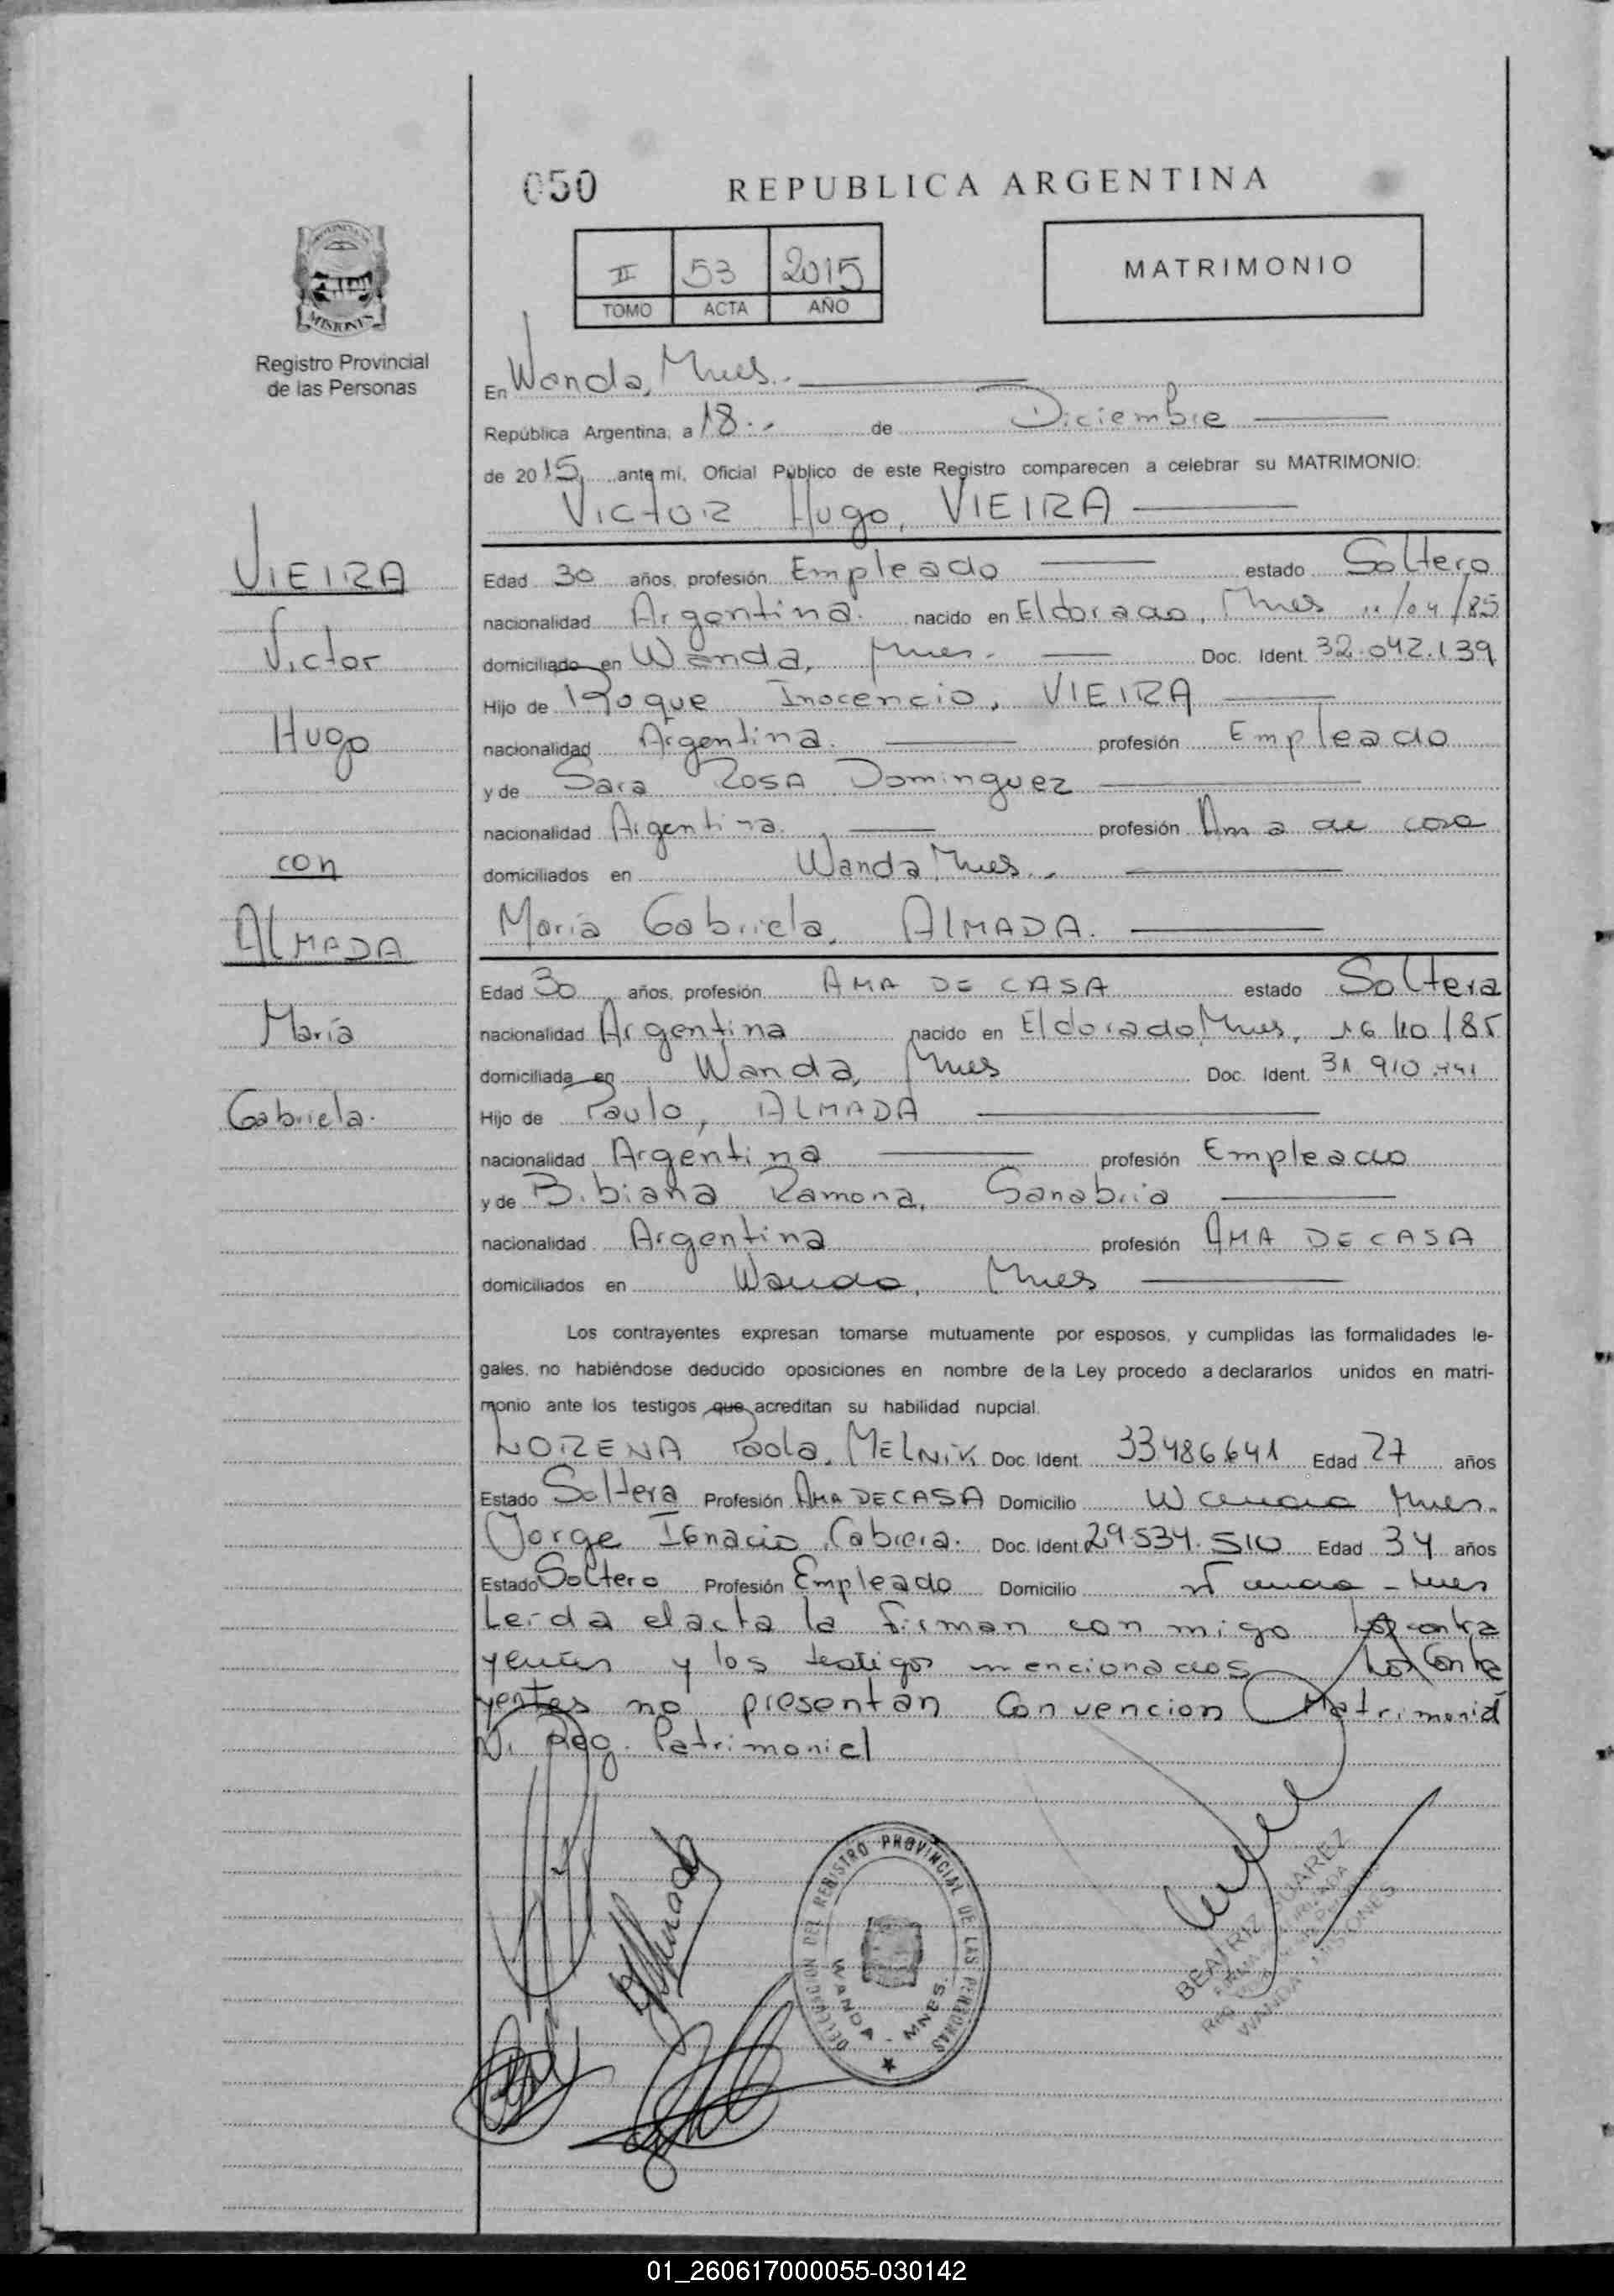 050
REPUBLICA ARGENTINA
II 53 2015
TOMO ACTA AÑO
MATRIMONIO
MISIONES
Registro Provincial
de las Personas
En Wanda, Mnes.
República Argentina, a 18 de Diciembre
de 2015 ante mi, Oficial Público de este Registro comparecen a celebrar su MATRIMONIO:
Victor Hugo, VIEIRA
VIEIRA
Victor
Hugo
con
ALMADA
María
Gabriela.
Edad 30 años, profesión Empleado estado Soltero
nacionalidad Argentina. nacido en Eldorado, Mnes 11/04/85
domiciliado en Wanda, Mnes. Doc. Ident. 32.042.139
Hijo de Roque Inocencio, VIEIRA
nacionalidad Argentina. profesión Empleado
y de Sara Rosa Dominguez
nacionalidad Argentina. profesión Ama de casa
domiciliados en Wanda Mnes.
María Gabriela, ALMADA.
Edad 30 años, profesión AMA DE CASA estado Soltera
nacionalidad Argentina nacido en Eldorado Mnes, 16/10/85
domiciliada en Wanda, Mnes Doc. Ident. 31.910.441
Hijo de Paulo, ALMADA
nacionalidad Argentina profesión Empleado
y de Bibiana Ramona, Sanabria
nacionalidad Argentina profesión AMA DE CASA
domiciliados en Wanda, Mnes
Los contrayentes expresan tomarse mutuamente por esposos, y cumplidas las formalidades le-
gales, no habiéndose deducido oposiciones en nombre de la Ley procedo a declararlos unidos en matri-
monio ante los testigos que acreditan su habilidad nupcial.
LORENA Paola, MELNIK Doc. Ident. 33486641 Edad 27 años
Estado Soltera Profesión AMA DE CASA Domicilio Wanda Mnes.
Jorge Ignacio Cabrera. Doc. Ident. 29.534.510 Edad 34 años
Estado Soltero Profesión Empleado Domicilio Wanda - Mnes
Leída el acta la firman con migo los contra
yentes y los testigos mencionados Los Contra
yentes no presentan Convencion Matrimonial
Ni Reg. Patrimonial
Almada
DELEGACION DEL REGISTRO PROVINCIAL DE LAS PERSONAS
WANDA - MNES.
BEATRIZ SUAREZ
WANDA MISIONES
01_260617000055-030142